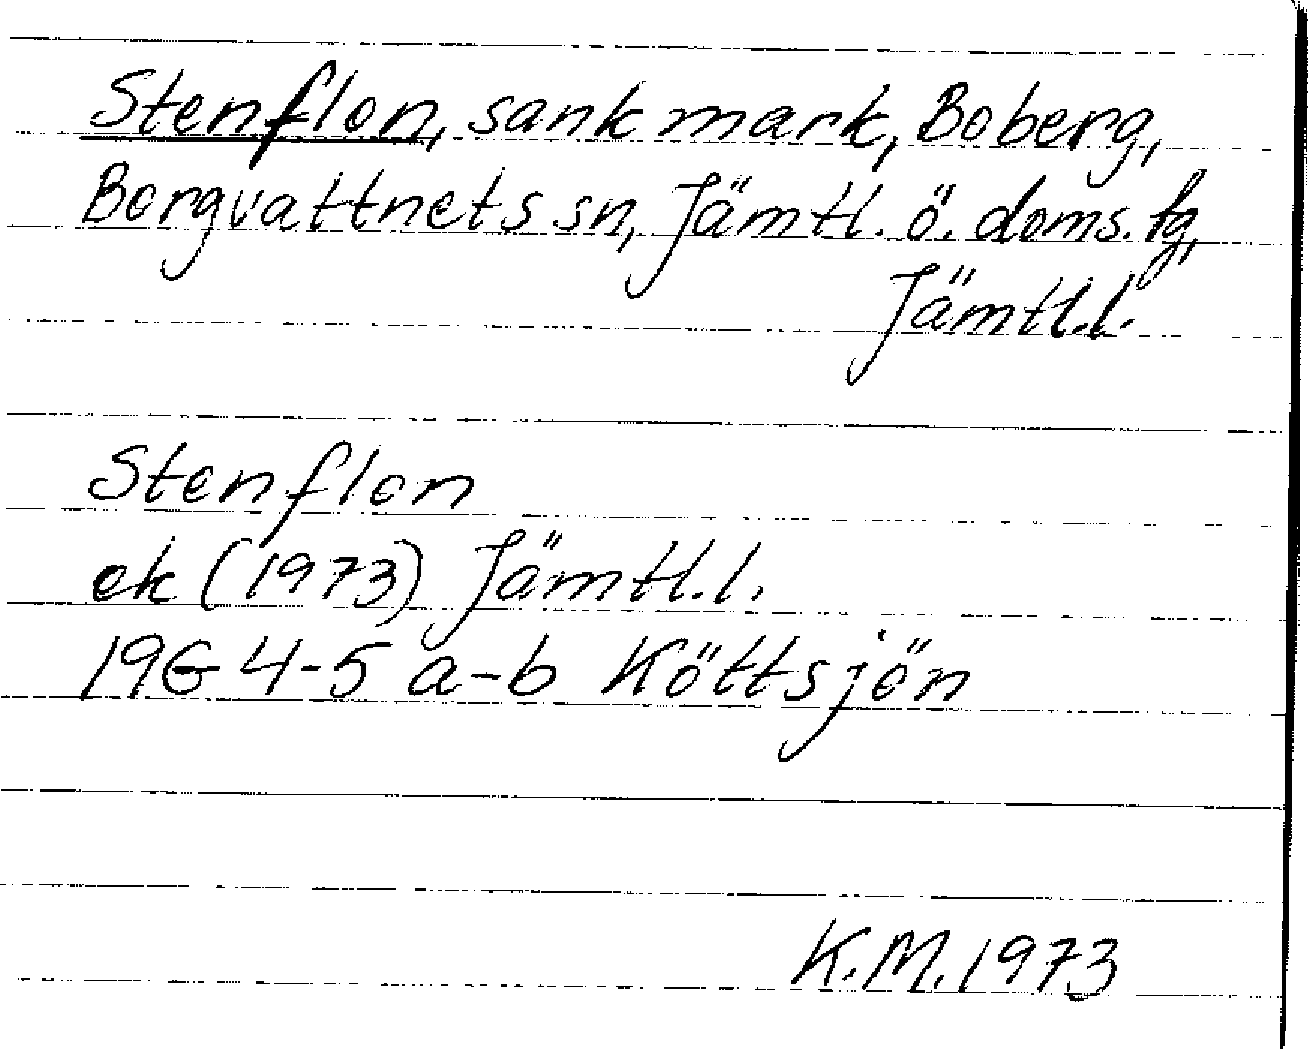 Stenflon, sank mark, Boberg,
Borgvattnets sn, Jämtl. ö. doms. fg,
Jämtl.l.
Stenflon
ek (1973) Jämtl.l.
19G 4-5 a-b Köttsjön
K.M. 1973